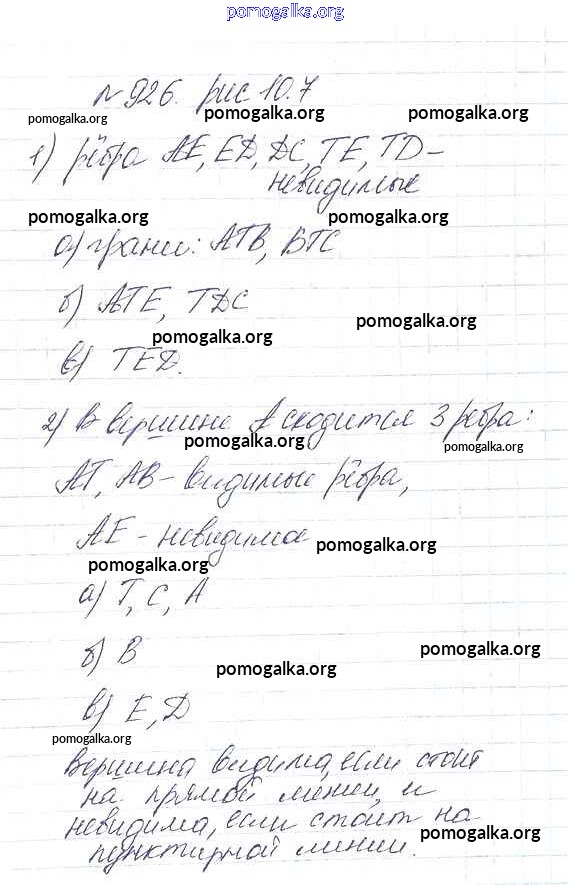 pomogalka.org
№ 926. рис 10.7
pomogalka.org pomogalka.org pomogalka.org
1) рёбра AE, ED, DC, TE, TD –
невидимые
pomogalka.org pomogalka.org
а) грани: ATB, BTC
б) ATE, TDC
pomogalka.org pomogalka.org
в) TED.
2) В вершине A сходится 3 ребра:
pomogalka.org pomogalka.org
AT, AB – видимые рёбра,
AE – невидимое
pomogalka.org pomogalka.org
а) T, C, A
б) B
pomogalka.org pomogalka.org
в) E, D
pomogalka.org
Вершина видима, если стоит
на прямой линии, и
невидима, если стоит на
pomogalka.org
пунктирной линии.